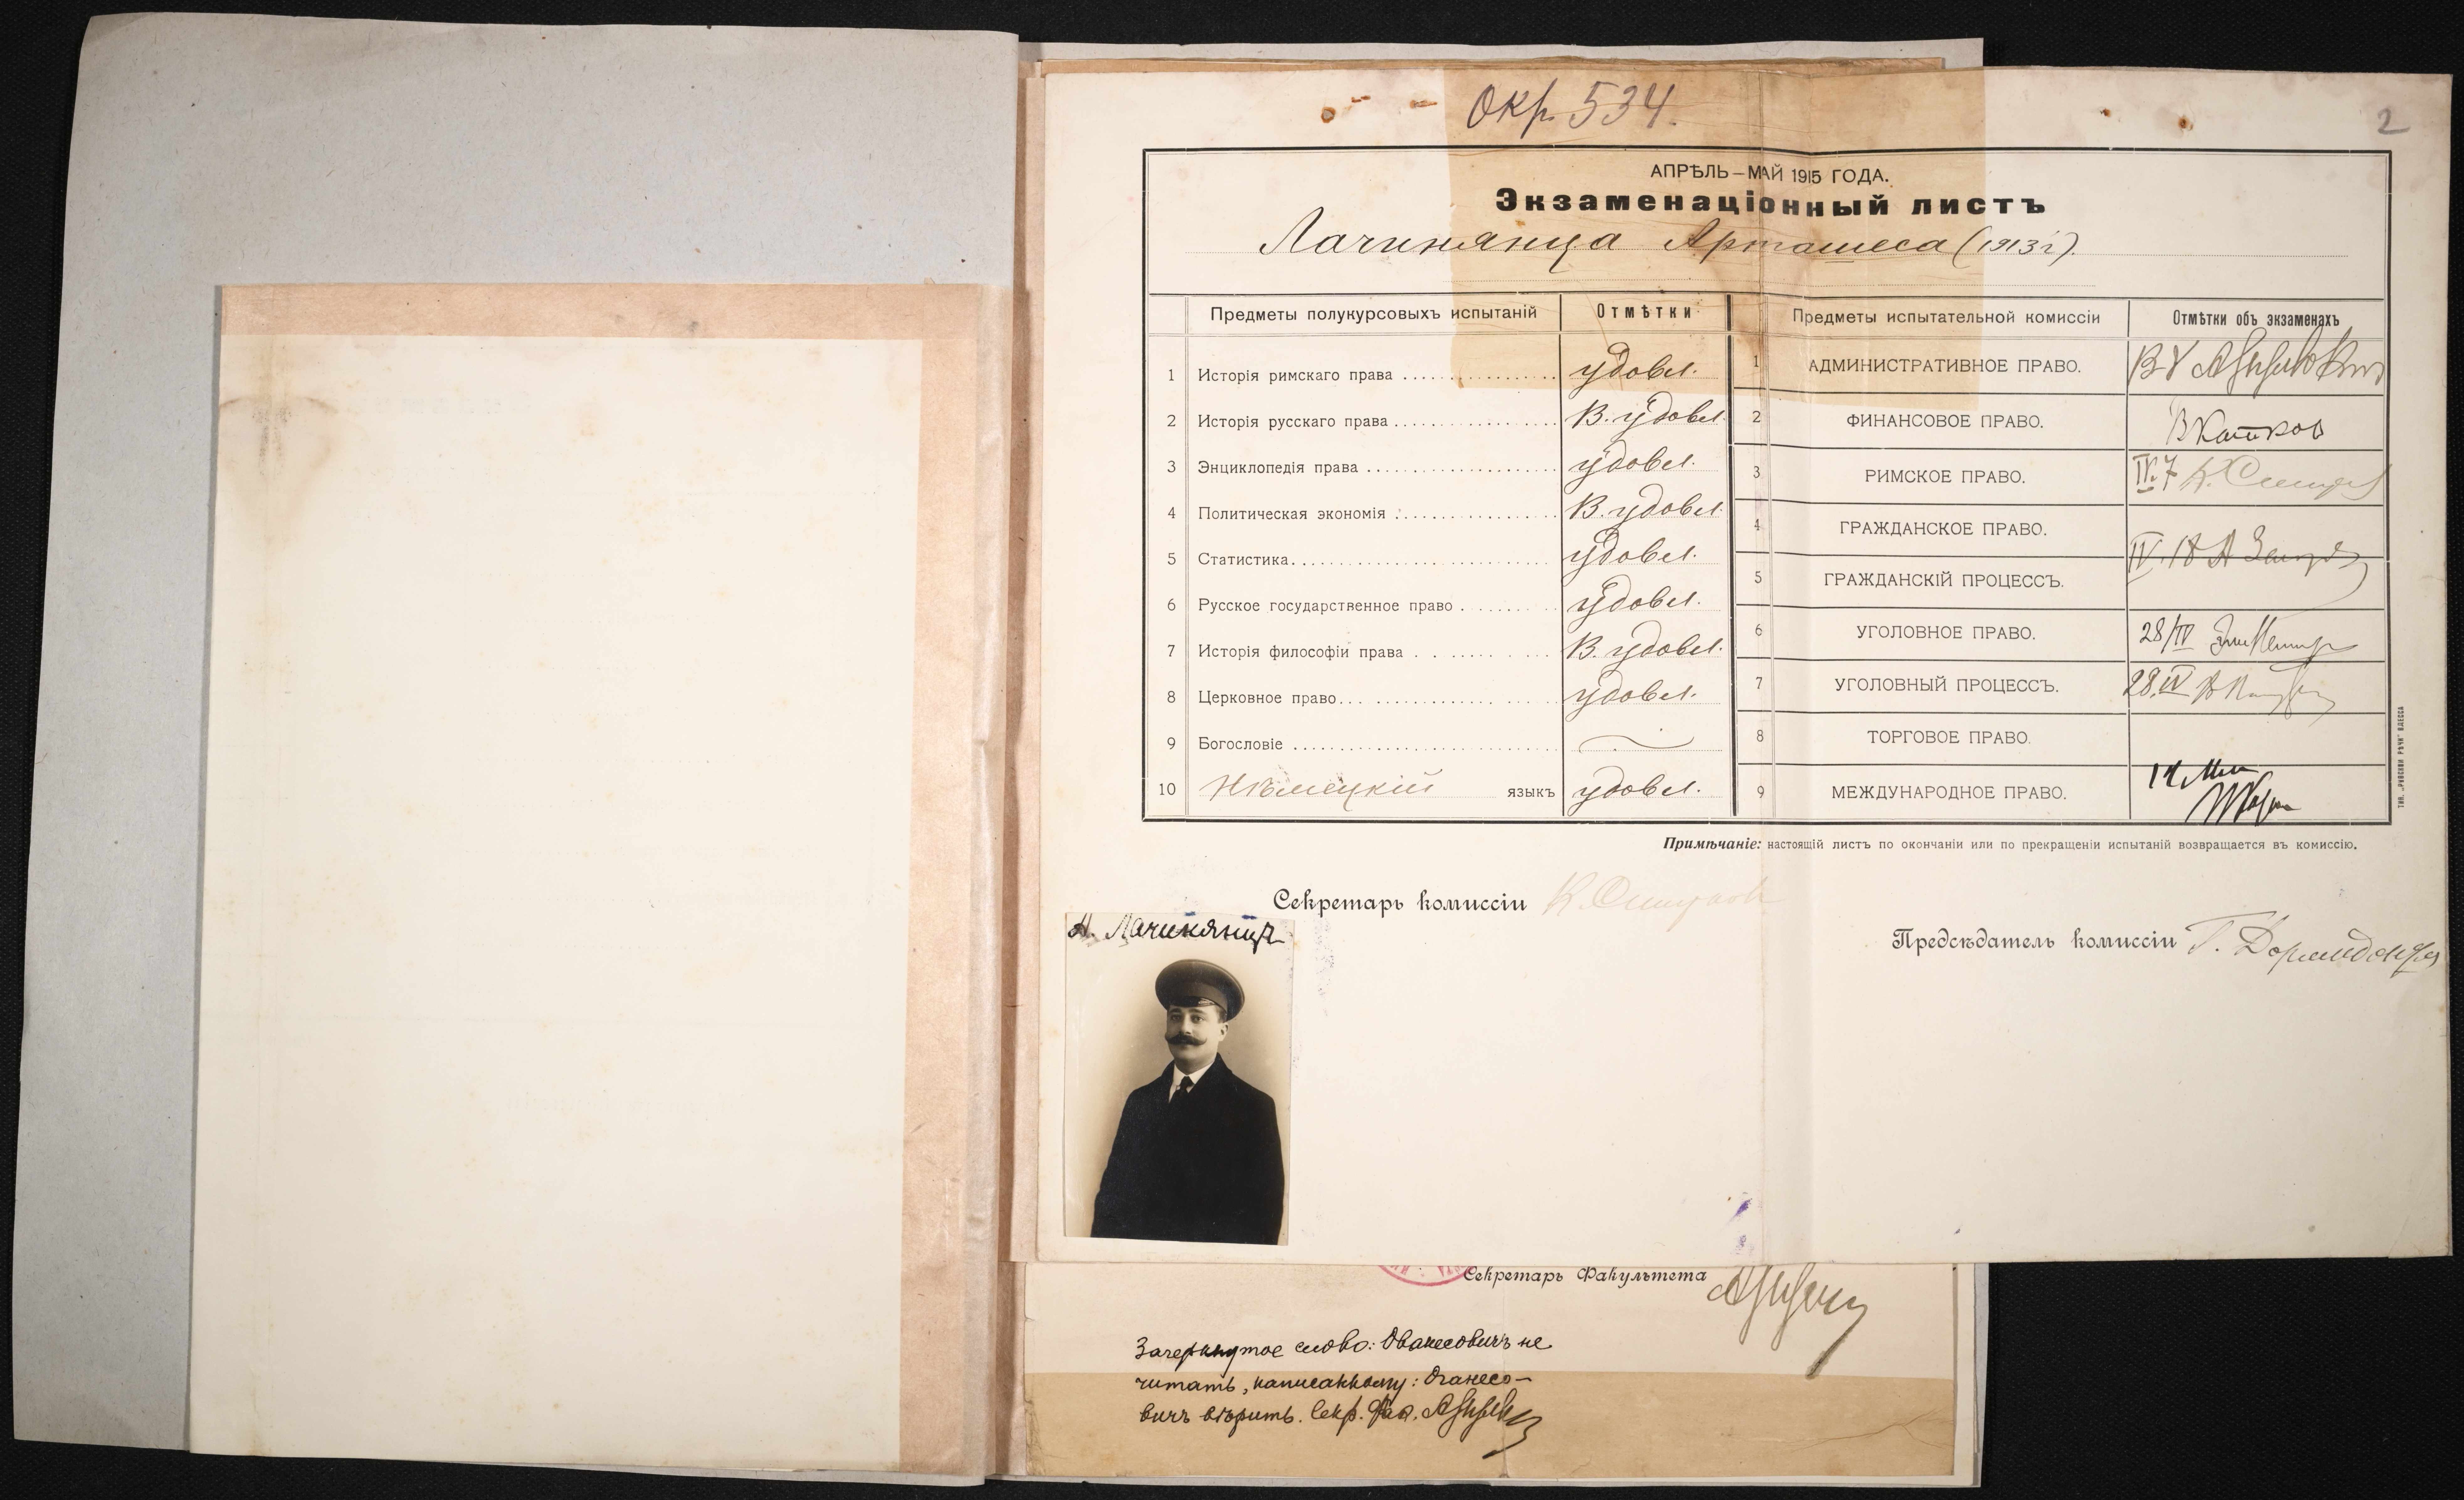 Окр. 534.
2
АПРѢЛЬ – МАЙ 1915 ГОДА.
Экзаменаціонный листъ
Лачинянца Арташеса (1913 г.).
Предметы полукурсовыхъ испытаній Отмѣтки Предметы испытательной комиссіи Отмѣтки объ экзаменахъ
1 Исторія римскаго права удовл.
2 Исторія русскаго права В. удовл.
3 Энциклопедія права удовл.
4 Политическая экономія В. удовл.
5 Статистика удовл.
6 Русское государственное право удовл.
7 Исторія философіи права В. удовл.
8 Церковное право удовл.
9 Богословіе
10 Нѣмецкій языкъ удовл.
1 АДМИНИСТРАТИВНОЕ ПРАВО.
2 ФИНАНСОВОЕ ПРАВО. В Катков
3 РИМСКОЕ ПРАВО. IV.7
4 ГРАЖДАНСКОЕ ПРАВО. IV.18
5 ГРАЖДАНСКІЙ ПРОЦЕССЪ.
6 УГОЛОВНОЕ ПРАВО. 28/IV
7 УГОЛОВНЫЙ ПРОЦЕССЪ. 28.IV
8 ТОРГОВОЕ ПРАВО.
9 МЕЖДУНАРОДНОЕ ПРАВО.
ТИП. „РУССКОЙ РѢЧИ“ ОДЕССА
Примѣчаніе: настоящій листъ по окончаніи или по прекращеніи испытаній возвращается въ комиссію.
Секретарь комиссіи
Предсѣдатель комиссіи
А. Лачинянцъ
Секретарь Факультета
Зачеркнутое слово: Ованесовичъ не
читать, написанному: Оганесо-
вичъ вѣрить. Секр. Фак.